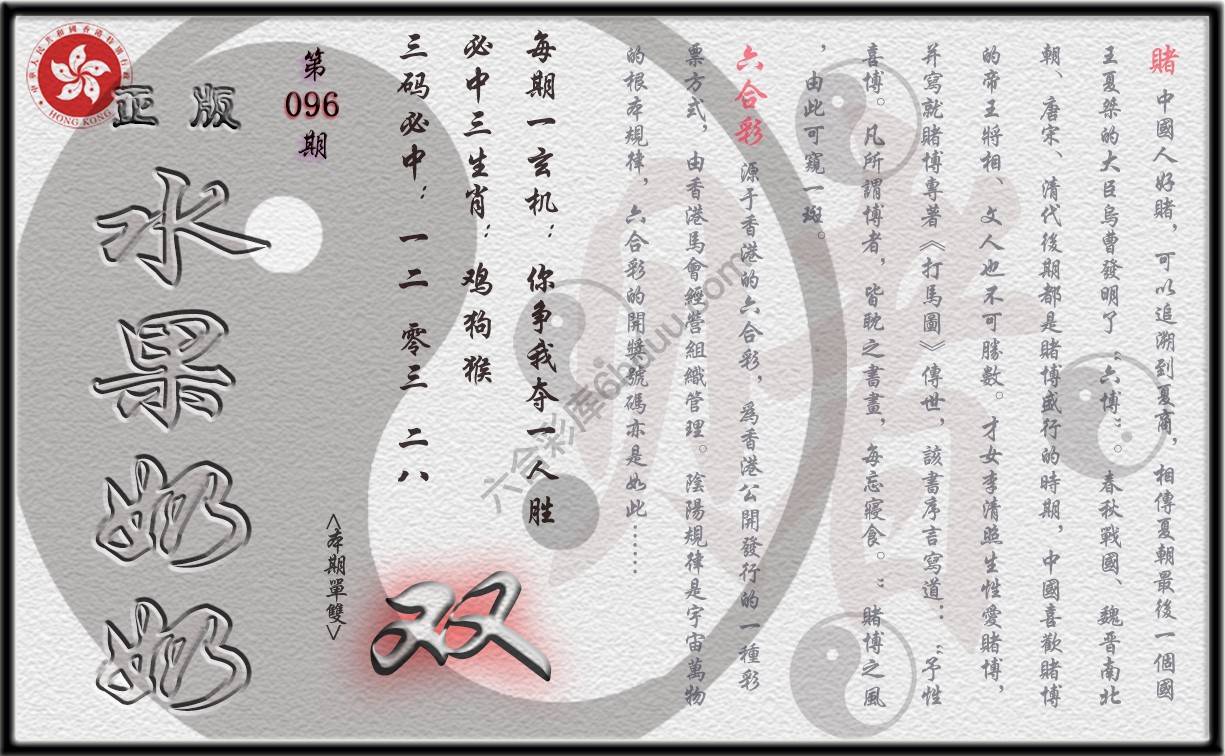 賭 中國人好賭，可以追溯到夏商，相傳夏朝最後一個國
王夏桀的大臣烏曹發明了“六博”。春秋戰國、魏晋南北
朝、唐宋、清代後期都是賭博盛行的時期，中國喜歡賭博
的帝王將相、文人也不可勝數。才女李清照生性愛賭博，
并寫就賭博專著《打馬圖》傳世，該書序言寫道：“予性
喜博。凡所謂博者，皆耽之書晝，每忘寢食。”賭博之風
，由此可窺一斑。
六合彩 源于香港的六合彩，爲香港公開發行的一種彩
票方式，由香港馬會經營組織管理。陰陽規律是宇宙萬物
的根本規律，六合彩的開獎號碼亦是如此……
每期一玄机：你争我夺一人胜
必中三生肖：鸡狗猴
三码必中：一二 零三 二八
第
096
期
<本期單雙>
双
正版
水果奶奶
中華人民共和國香港特別行政區
HONG KONG
六合彩库6hduu.com